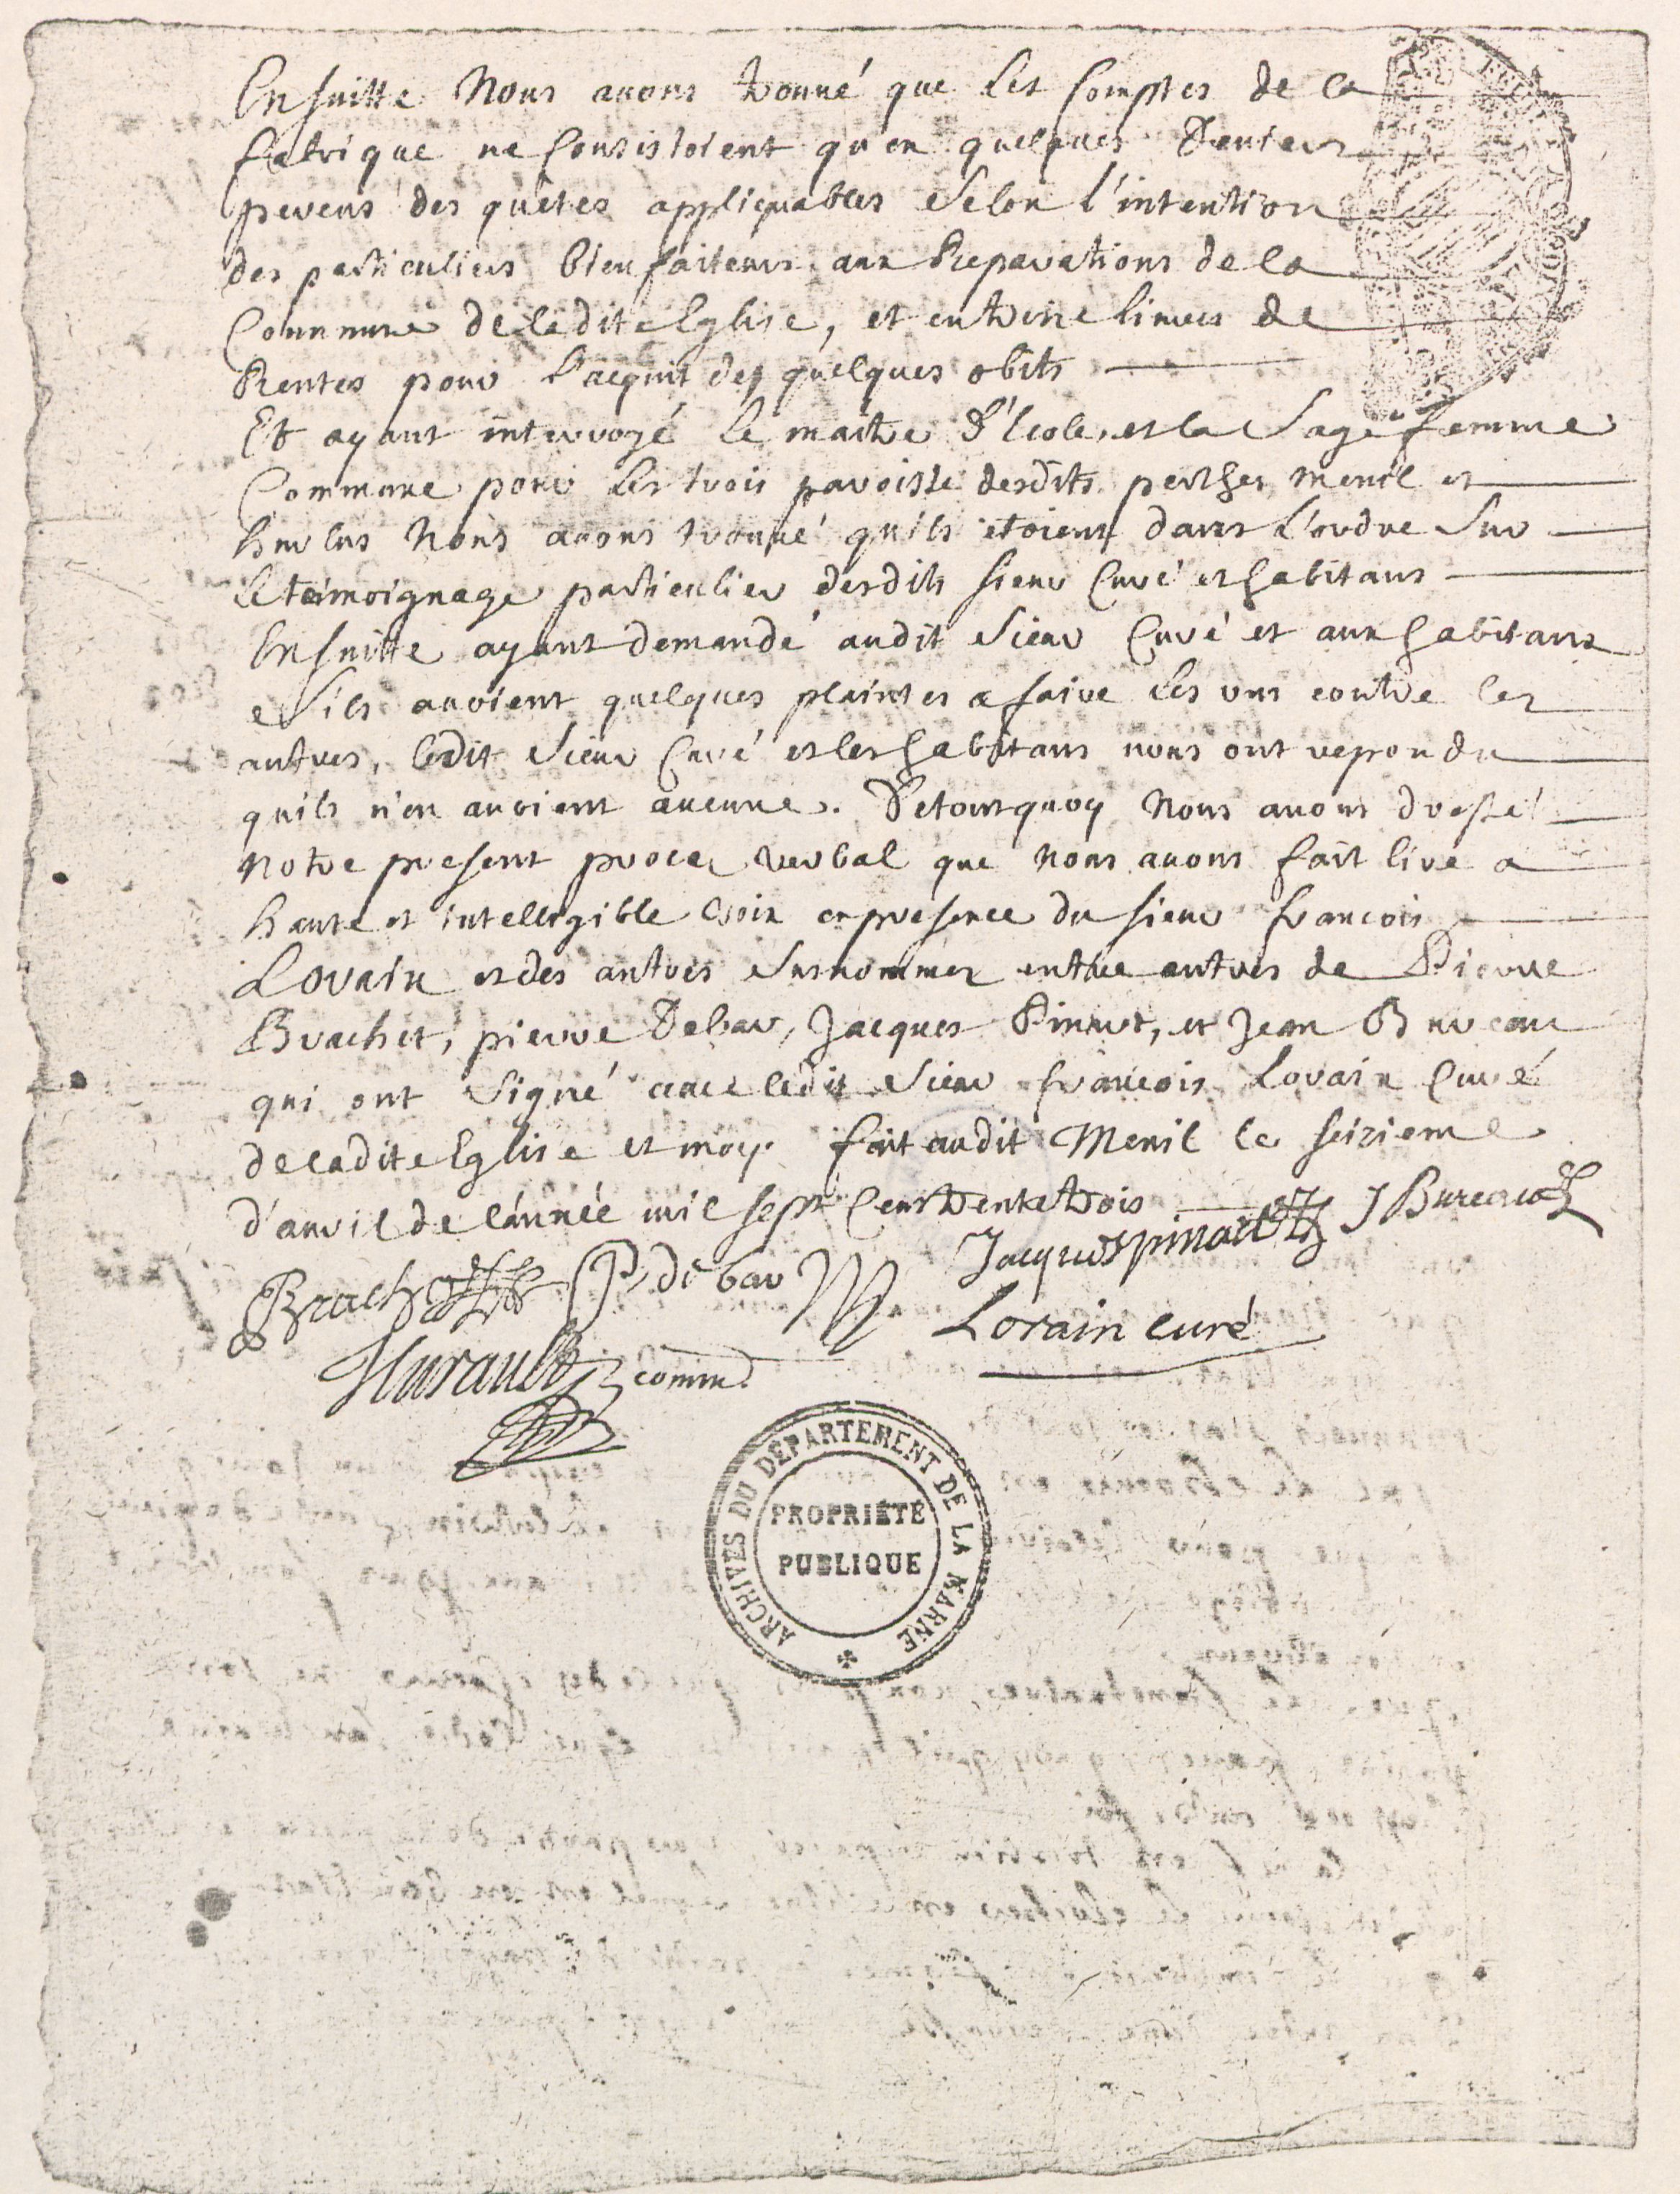 Ensuitte Nous auons trouué que les Comptes de la
fabrique ne Consistoient qu'en quelques Deniers
prevens des quêtes appliquables Selon l'intention
des particuliers bienfaiteurs aux Reparations de la
Commune de ladite Eglise, et en trine liures de
Rentes pour l'acquit des quelques obits
Et ayant interrogé le maitre d'Ecole, et la Sage femme
Commune pour les trois paroisse desdits perthes, menil et
hurlus Nous auons trouué qu'ils etoient dans l'ordre Sur
le temoignage particulier desdits sieur Curé et habitans
Ensuitte ayant demandé audit Sieur Curé et aux habitans
S'ils auoient quelques plaintes a faire les uns contre les
autres, ledit Sieur Curé et les habitans nous ont repondu
quils n'en auoient aucune. De tout quoy Nous auons dressé
notre present proces verbal que nous auons fait lire a
haute et intelligible voix en presence du sieur francois
Lorain et des autres Surnommez entre autres de Pierre
Brachet, pierre Debar, Jacques Pinart, et Jean Bureau
qui ont Signé auec ledit Sieur francois Lorain Curé
de ladite Eglise et moy. fait audit Menil le seizieme
d'auril de l'année mil sept Cent trente trois
Jacques pinart J Bureau
Brachet P. de bar
Lorain curé
Hurault comm.
ARCHIVES DU DÉPARTEMENT DE LA MARNE
PROPRIÉTÉ
PUBLIQUE